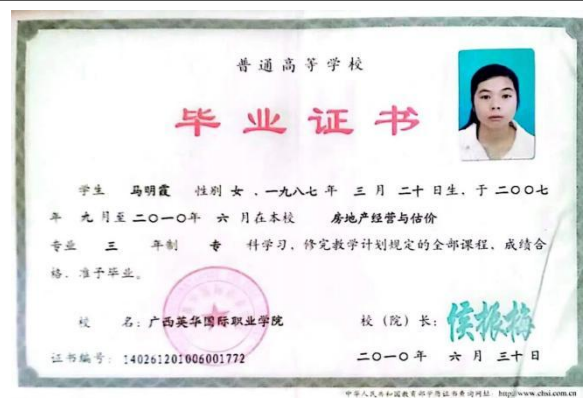 普通高等学校
毕业证书
学生 马明霞 性别 女 、一九八七 年 三 月 二十 日生、于 二〇〇七
年 九 月至 二〇一〇年 六 月在本校 房地产经营与估价
专业 三 年制 专 科学习、修完教学计划规定的全部课程、成绩合
格、准予毕业。
校 名：广西英华国际职业学院 校（院）长：侯振梅
证书编号：140261201006001772 二〇一〇 年 六 月 三十 日
中华人民共和国教育部学历证书查询网址：http://www.chsi.com.cn